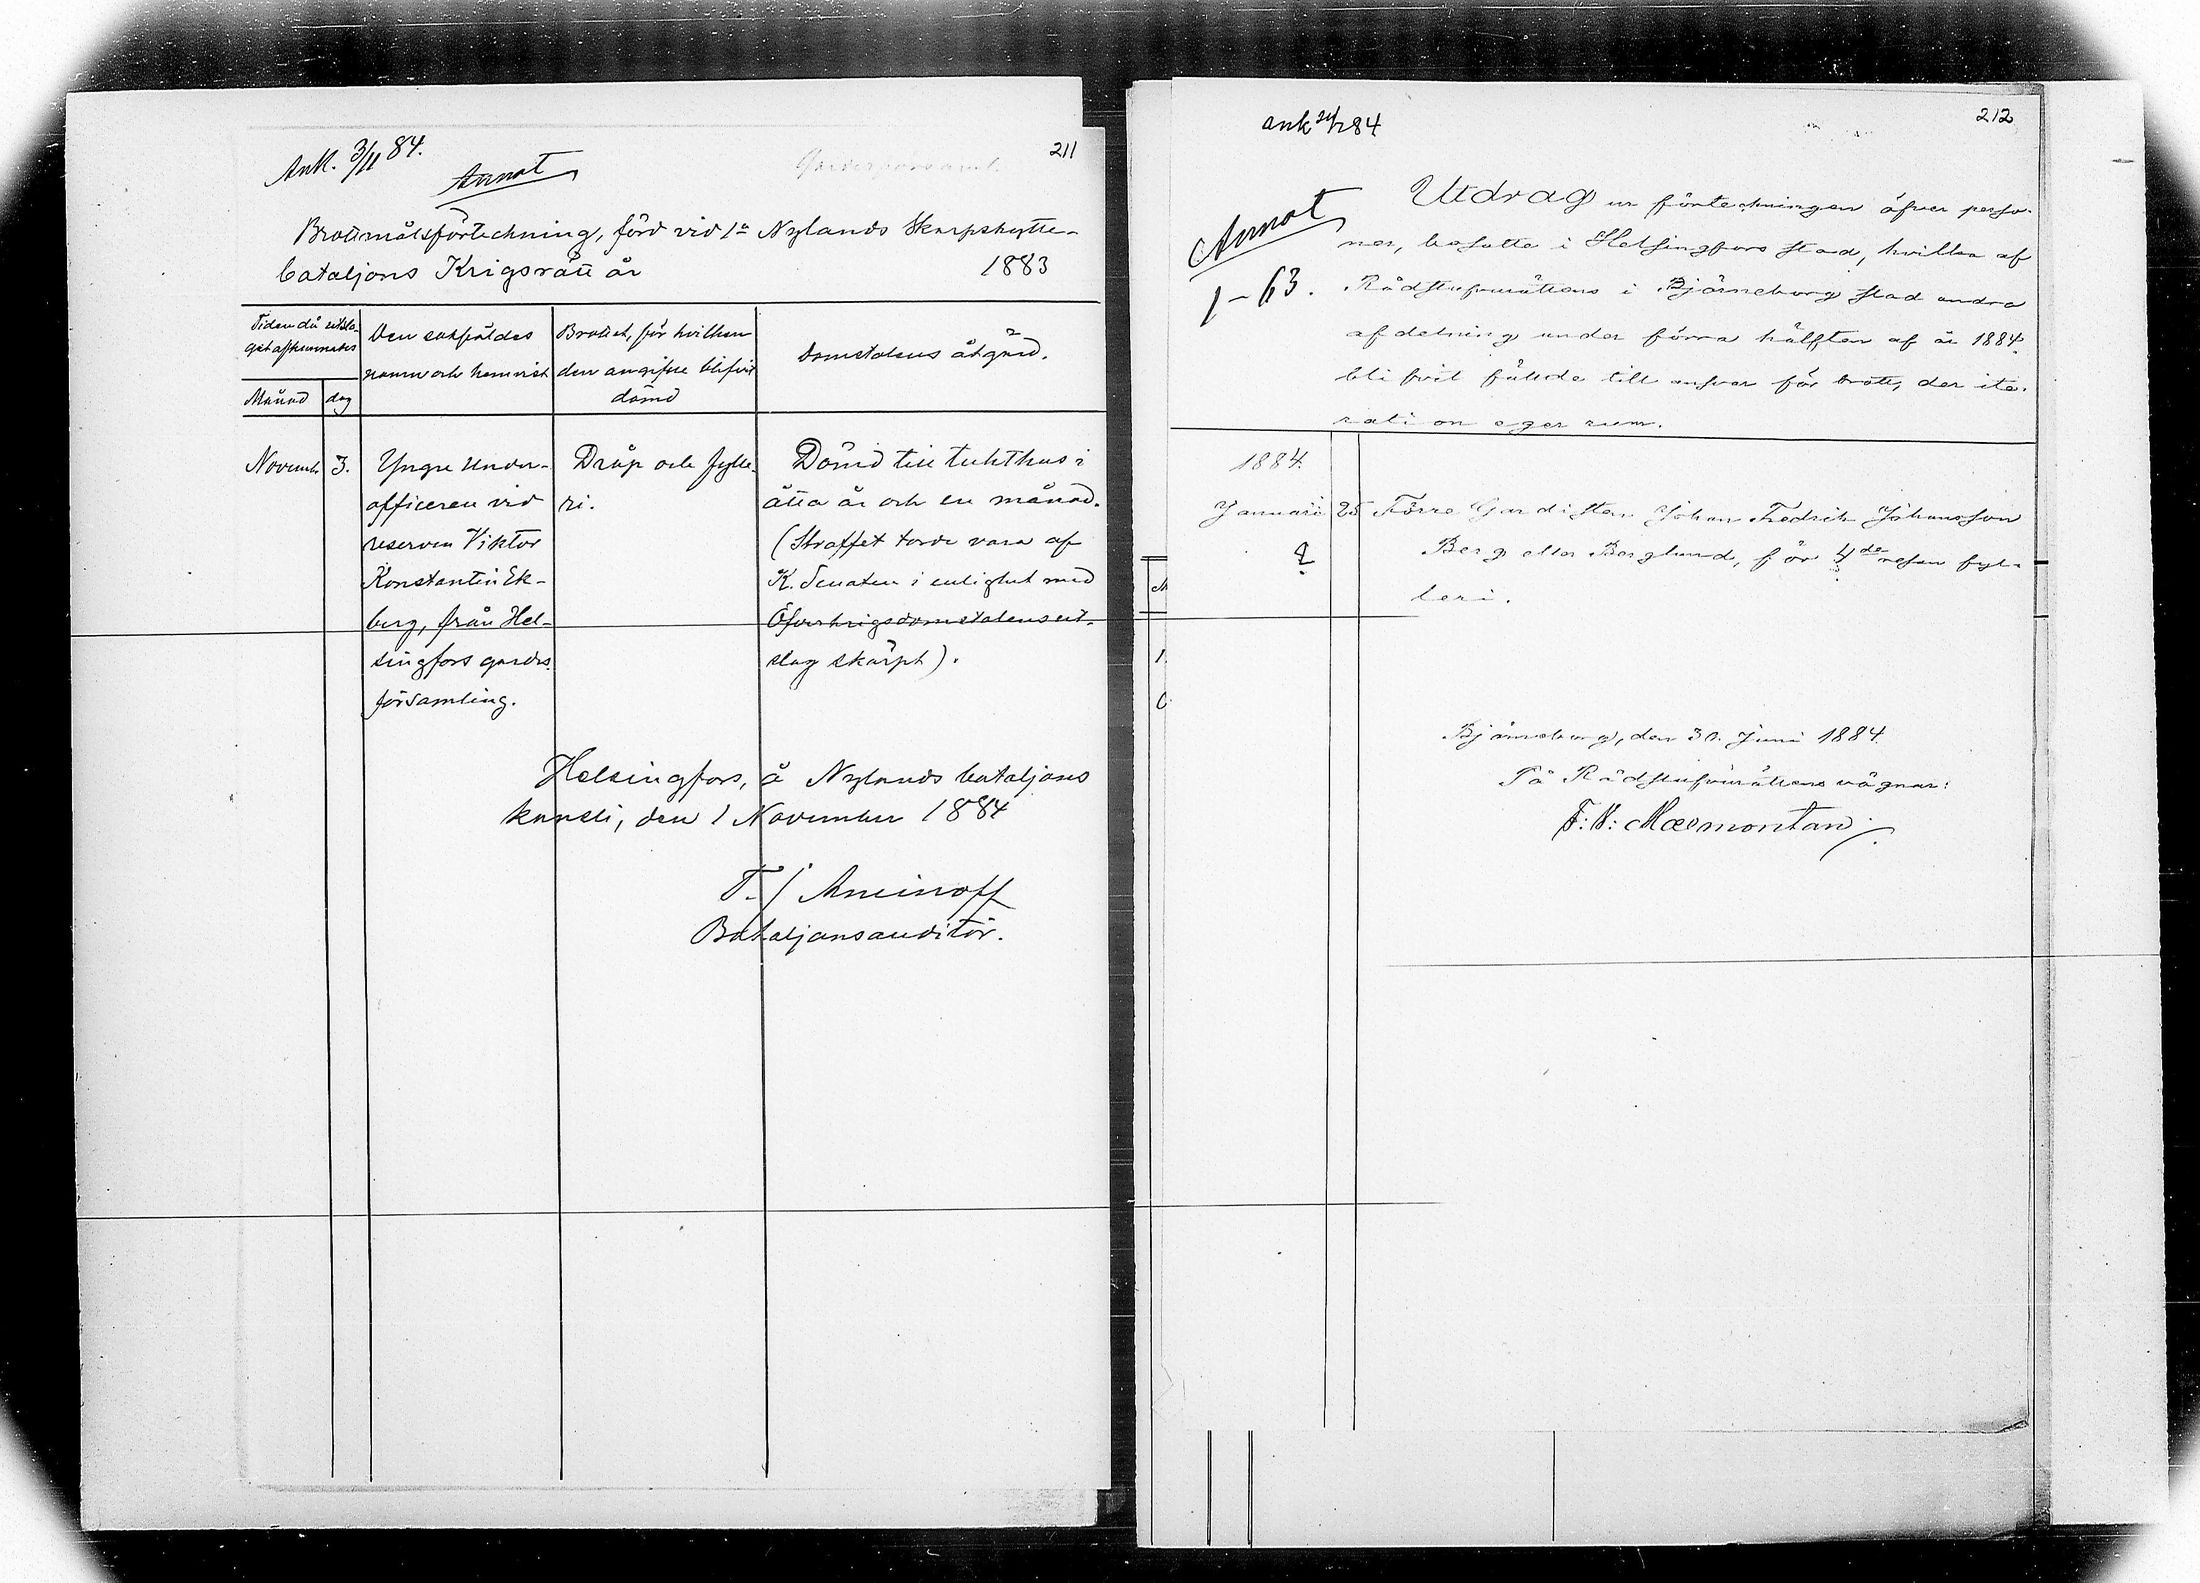 Ank. 3/11 84.
Annot
211
Brottmålsförteckning, förd vid 1a Nylands Skarpskytte-
bataljons Krigsrätt år 1883
Tiden då utsla-
get afkunnades
Månad
dag
Den sakfäldes
namn och hemvist
Brottet, för hvilken
den angifne blifvit
dömd
Domstolens åtgärd.
Novemb.
3.
Yngre Under-
officeren vid
reserven Viktor
Konstantin Ek-
berg, från Hel-
singfors gardes-
församling.
Dråp och fylle-
ri.
Dömd till tukthus i
åtta år och en månad.
(Straffet torde vara af
K. Senaten i enlighet med
Öfverkrigsdomstolens ut-
slag skärpt).
Helsingfors, å Nylands bataljons
kansli, den 1 November 1884
T. J Amnioff
Bataljonsauditör.
ank 24/7 84
212
Annot
1-63.
Utdrag ur förteckningen öfver perso-
ner, bosatte i Helsingfors stad, hvilka af
Rådstufvurättens i Björneborg stad andra
afdelning under förra hälften af år 1884
blifvit fällde till ansvar för brott, der ite-
ration eger rum.
1884.
Januari 25 Förre Gardisten Johan Fredrik Johansson
Berg eller Berglund, för 4de resan fyl-
leri.
Björneborg, den 30. Juni 1884.
På Rådstufvurättens vägnar:
F: V: Mæsmontan